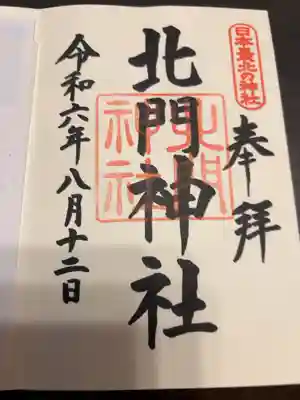 日本最北の神社
奉拝
北門神社
北門神社
令和六年八月十二日